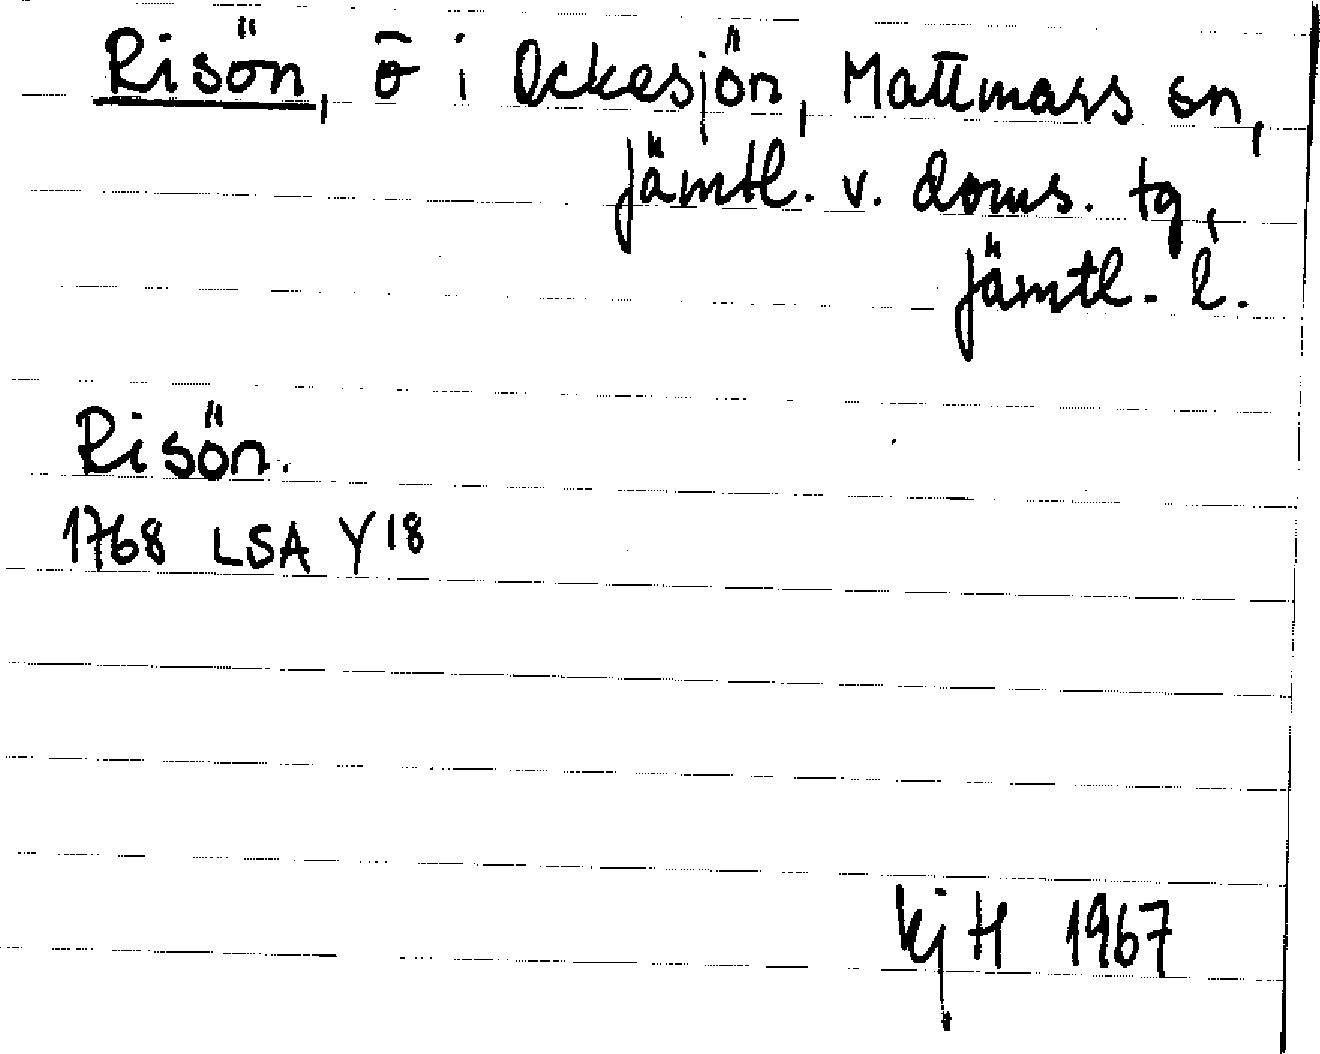 Risön, ö i Ockesjön, Mattmars sn,
Jämtl. v. doms. tg,
Jämtl. l.
Risön.
1768 LSA Y18
KjH 1967